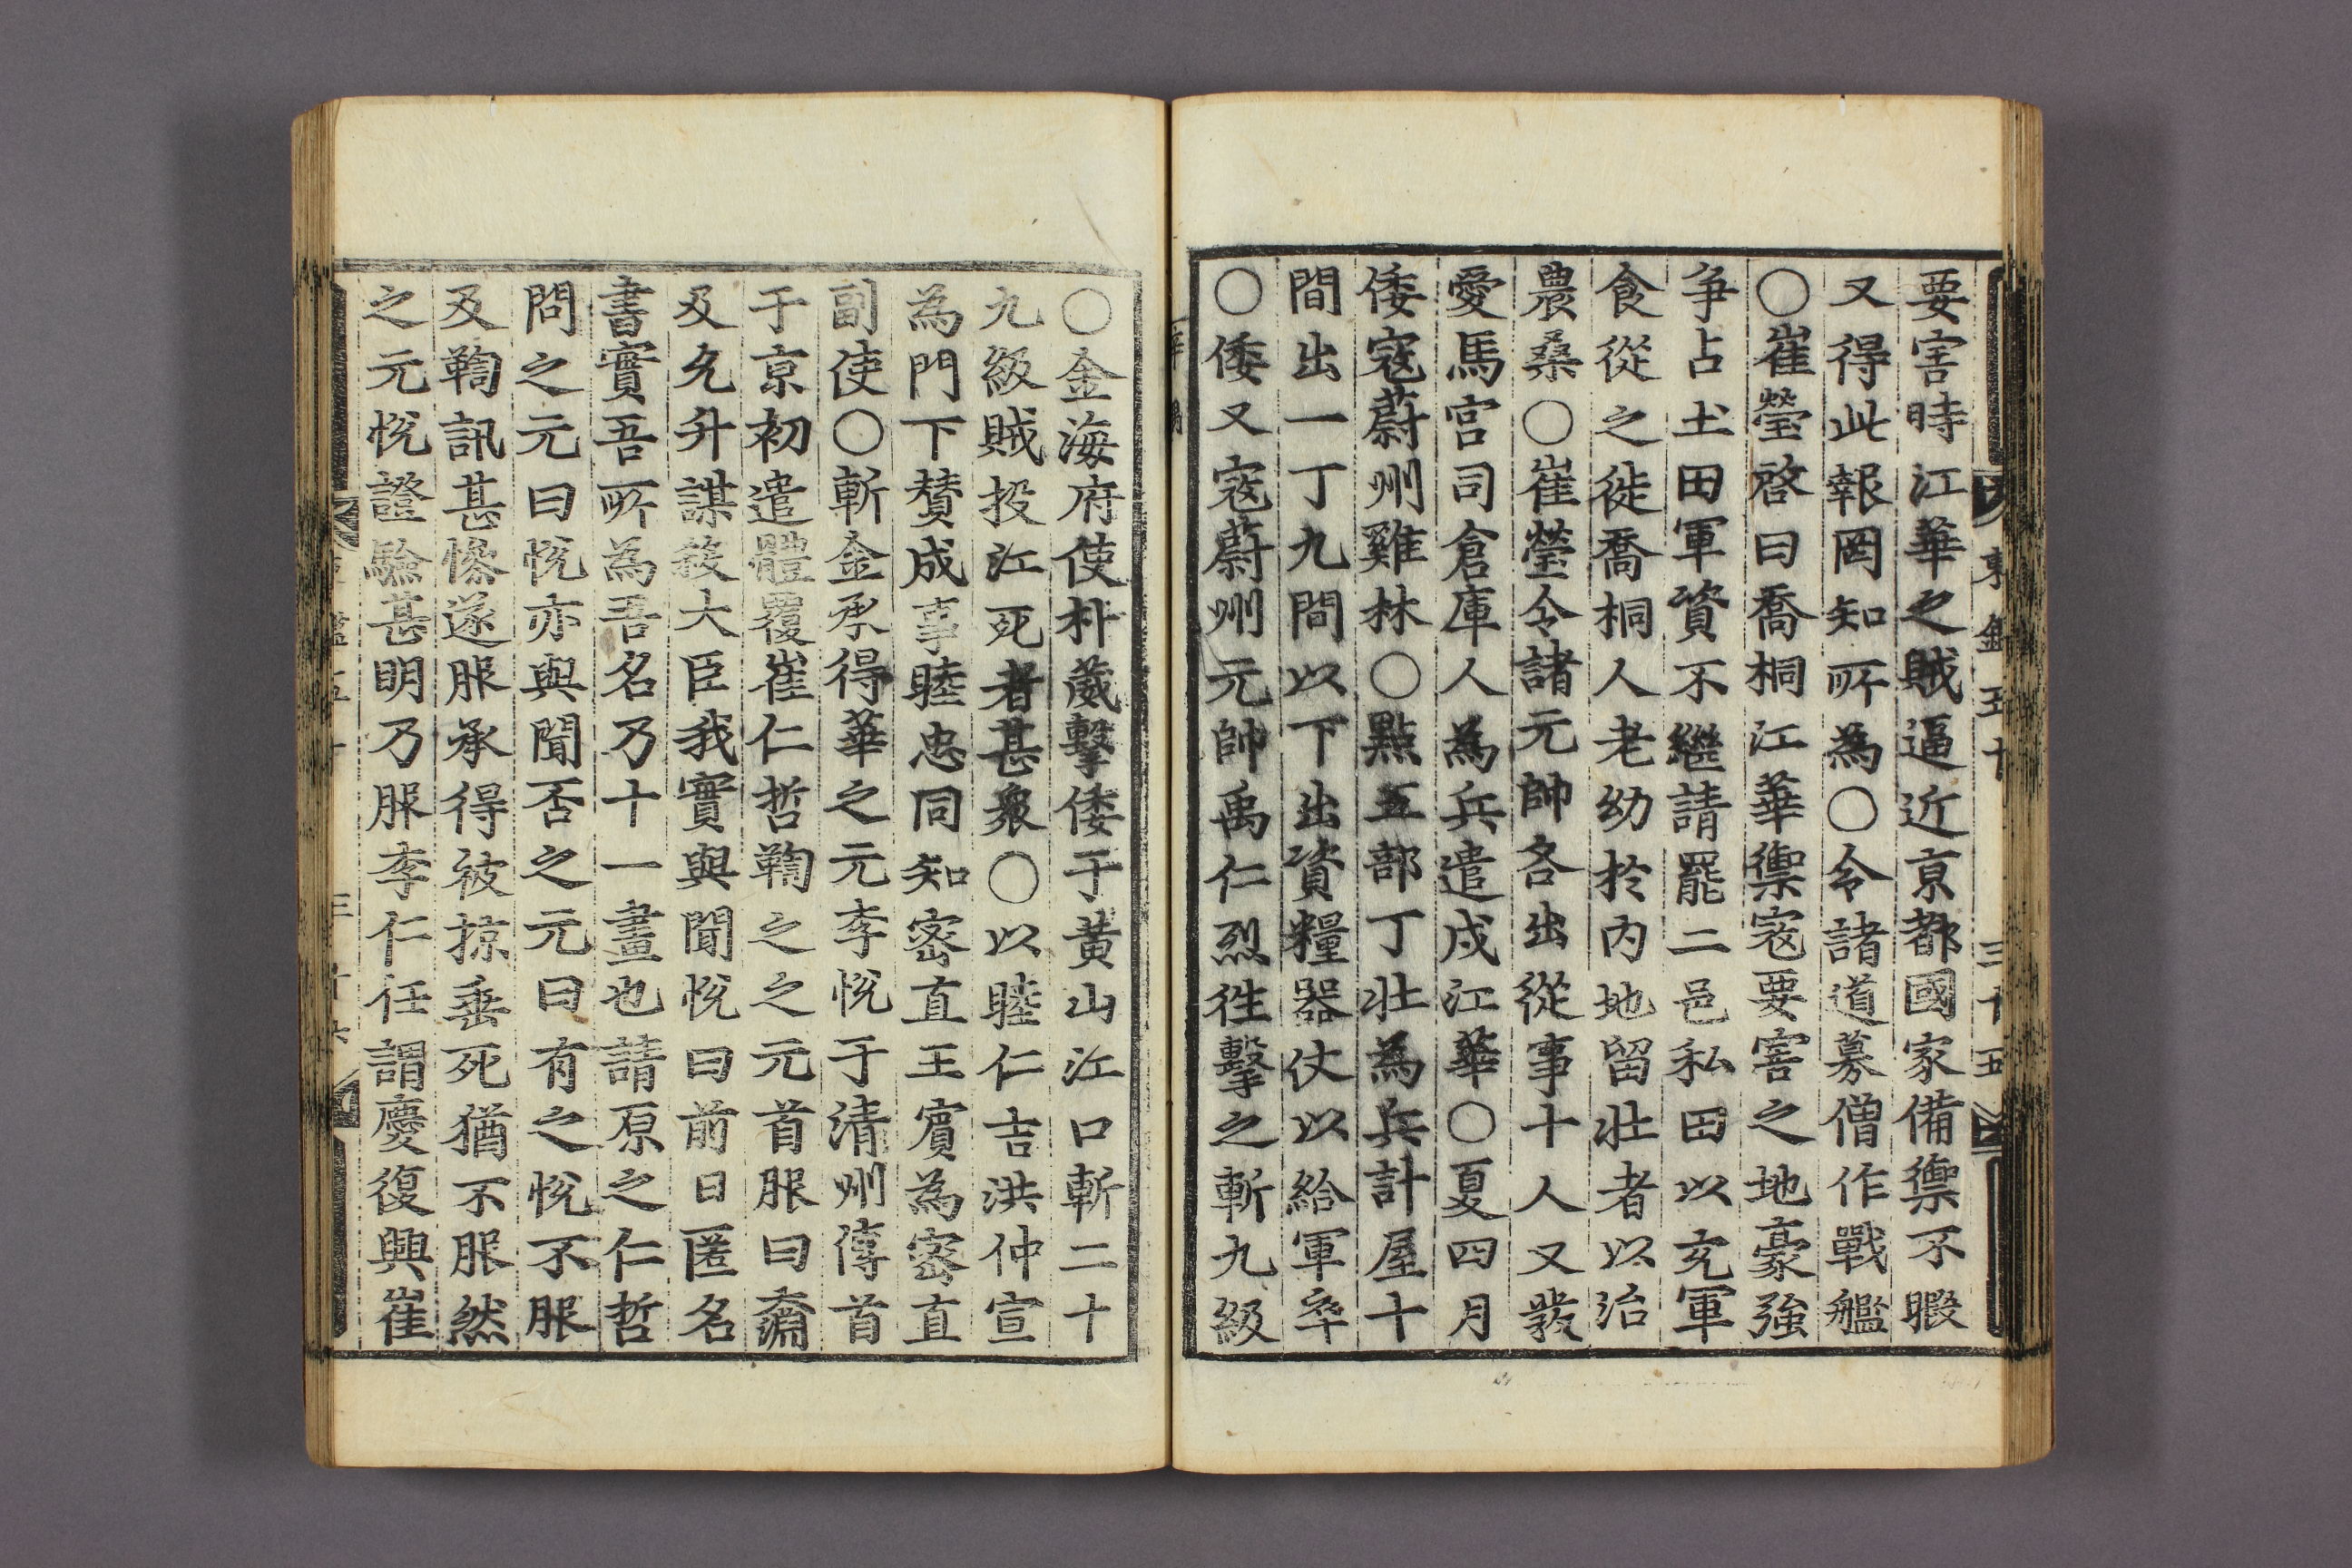 要害時江華之賊逼近京都國家備禦不暇
又得此報罔知所為○令諸道募僧作戰艦
○崔瑩啓曰喬桐江華禦寇要害之地豪強
爭占土田軍資不繼請罷二邑私田以充軍
食從之徙喬桐人老幼於內地留壯者以治
農桑○崔瑩令諸元帥各出從事十人又發
愛馬宮司倉庫人為兵遣戍江華○夏四月
倭寇蔚州雞林○點五部丁壯為兵計屋十
間出一丁九間以下出資糧器仗以給軍卒
○倭又寇蔚州元帥禹仁烈往擊之斬九級
○金海府使朴葳擊倭于黃山江口斬二十
九級賊投江死者甚衆○以睦仁吉洪仲宣
為門下贊成事睦忠同知密直王賓為密直
副使○斬金承得華之元李悅于清州傳首
于京初遣體覆崔仁哲鞫之之元首服曰齊
及允升謀殺大臣我實與聞悅曰前日匿名
書實吾所為吾名乃十一畫也請原之仁哲
問之元曰悅亦與聞否之元曰有之悅不服
及鞫訊甚慘遂服承得被掠垂死猶不服然
之元悅證驗甚明乃服李仁任謂慶復興崔
東鑑五十 三十五